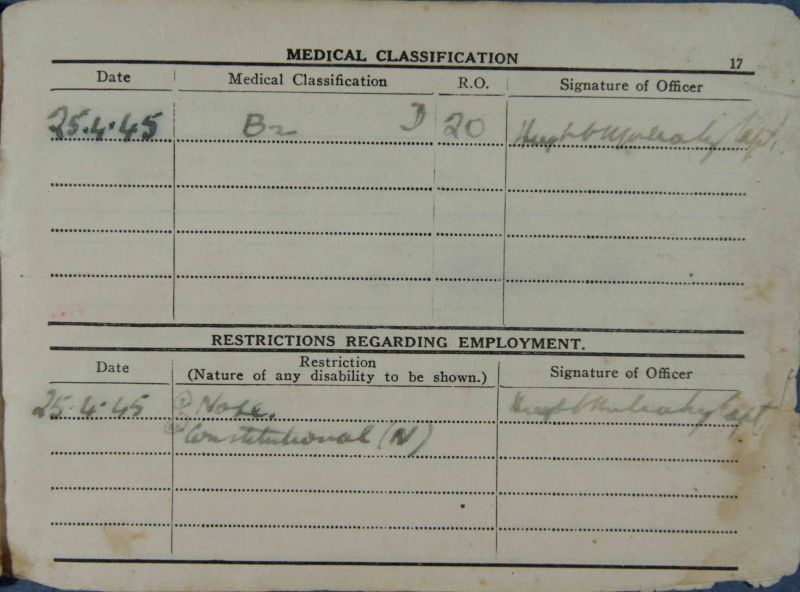 MEDICAL CLASSIFICATION 17
Date Medical Classification R.O. Signature of Officer
25.4.45 B2 D 20 Hugh Mulcahy Capt.
RESTRICTIONS REGARDING EMPLOYMENT.
Date Restriction (Nature of any disability to be shown.) Signature of Officer
25.4.45 Nose. Hugh Mulcahy Capt
Constitutional (N)